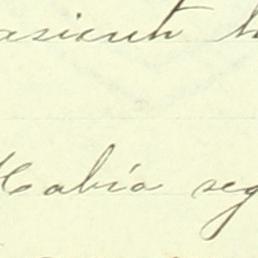 asiento
Había seg